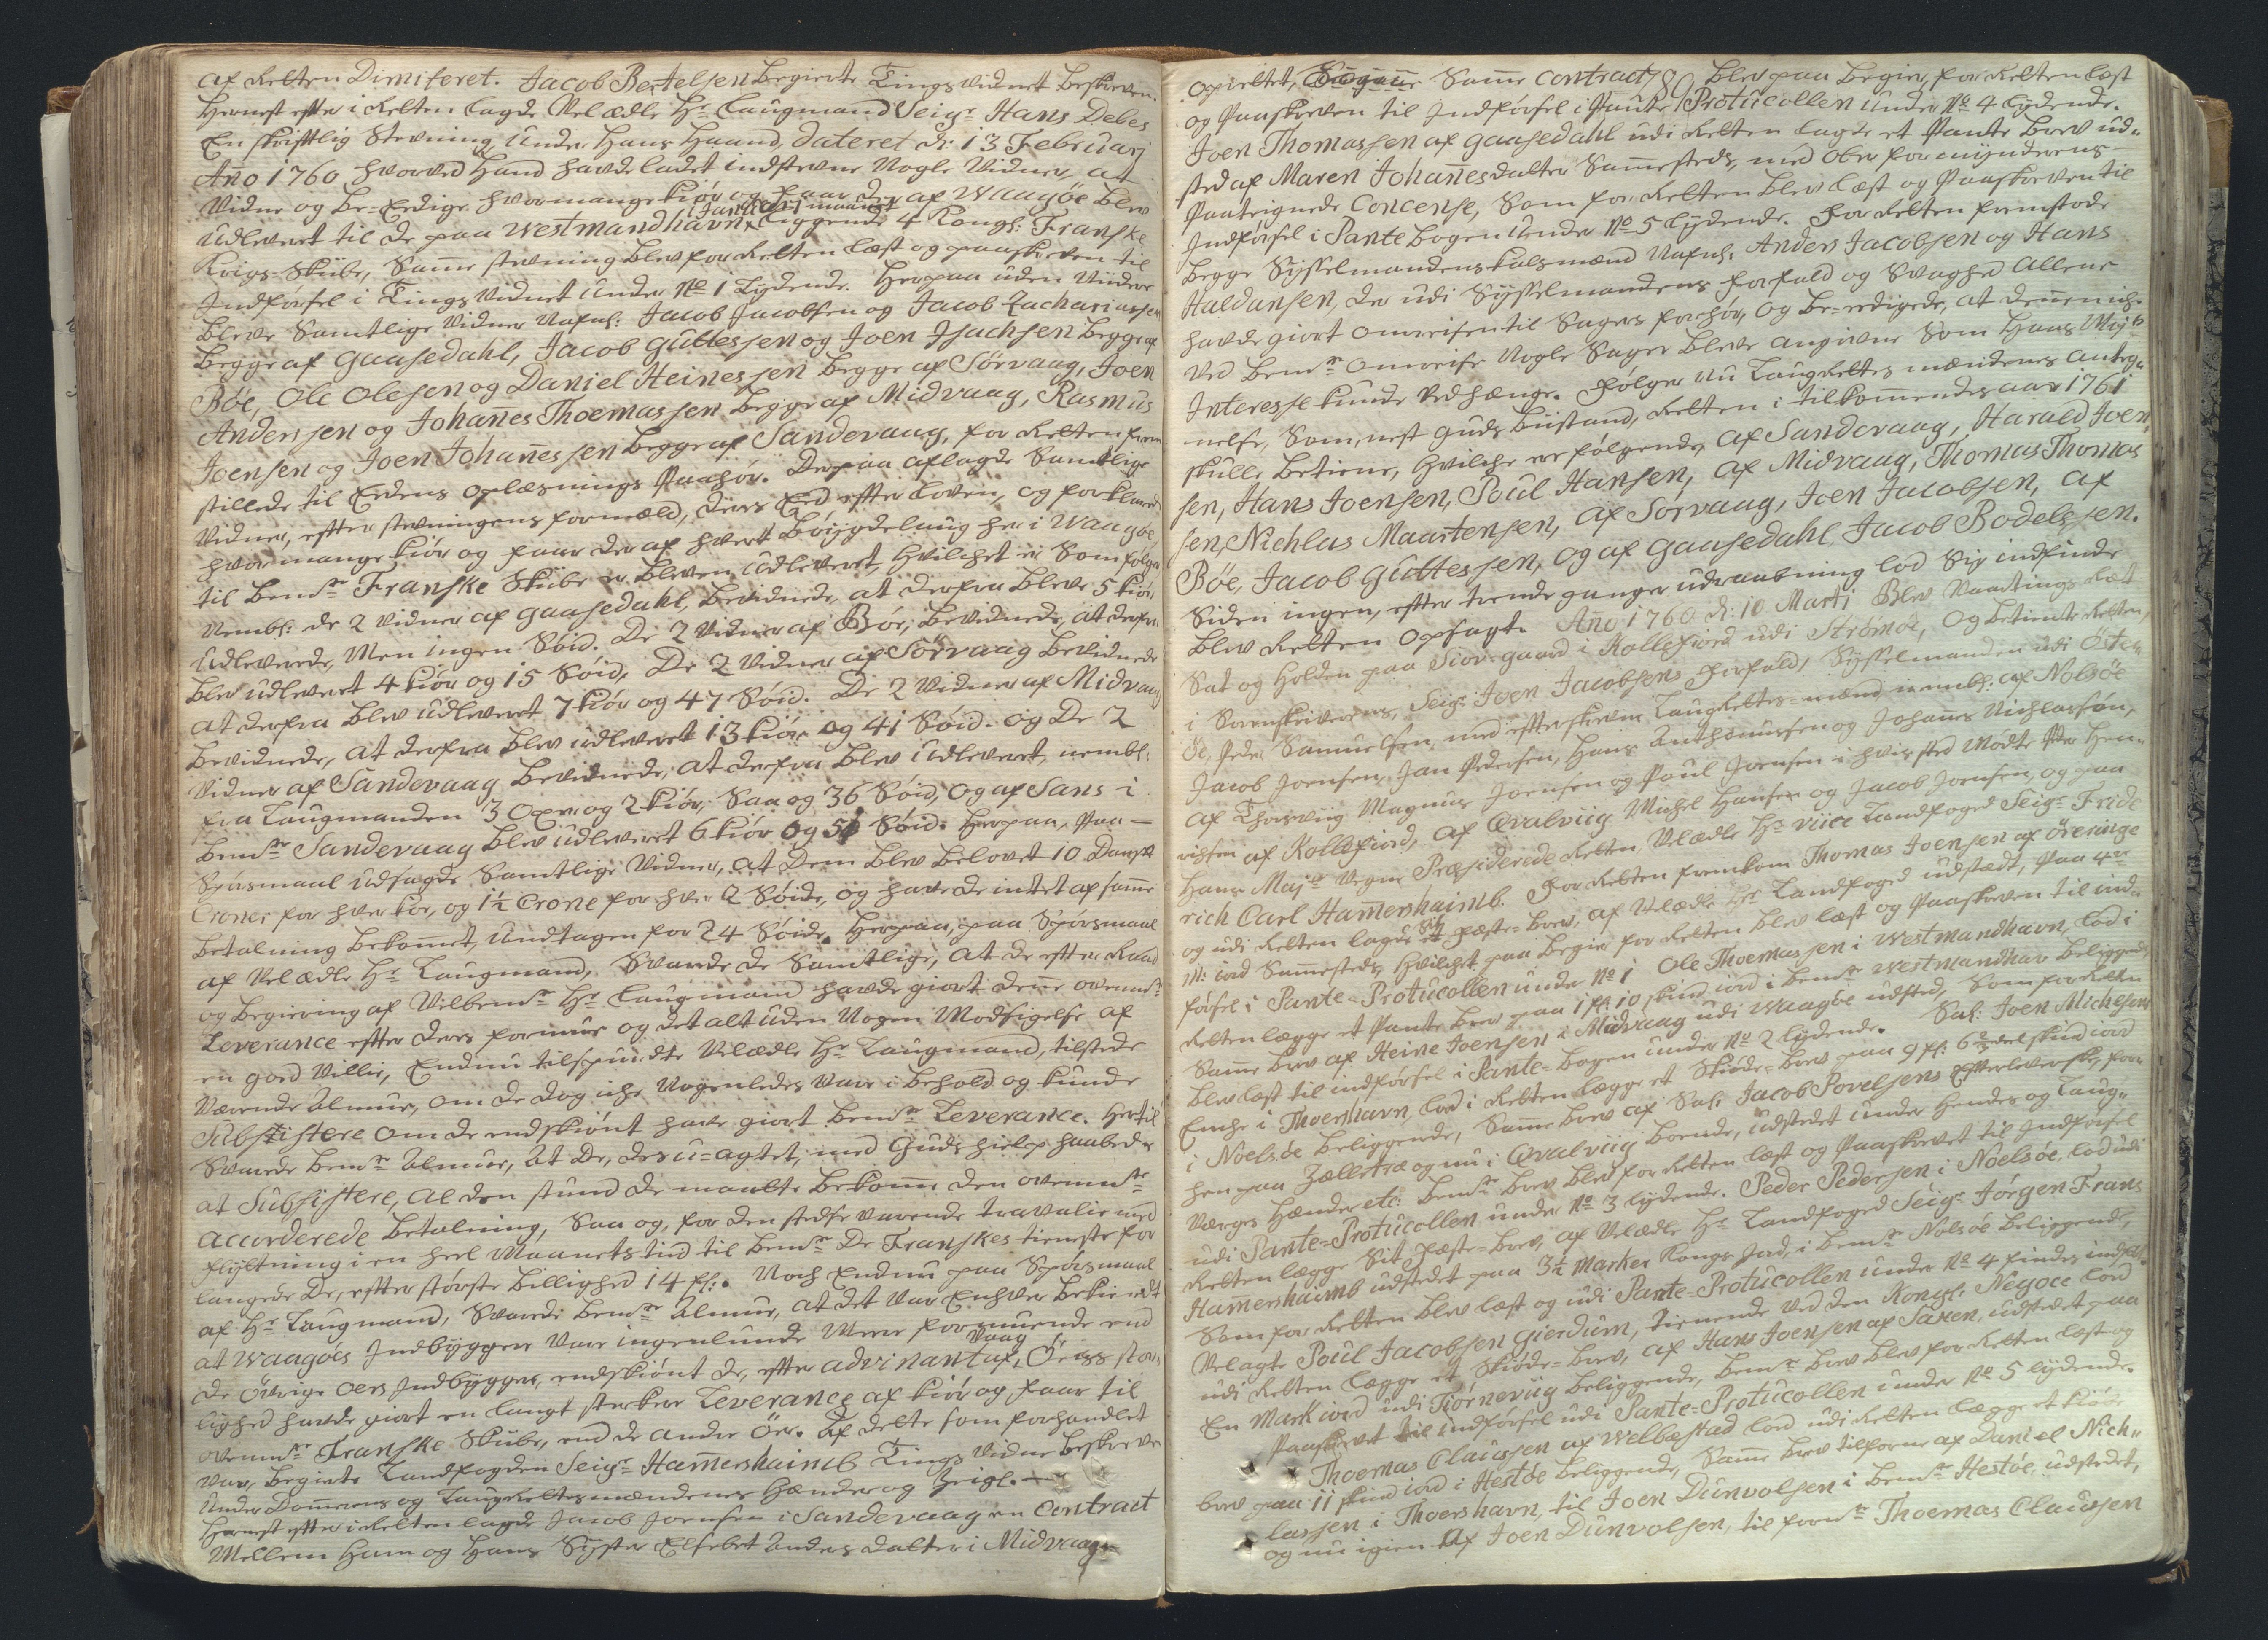 af Retten Dimiteret. Jacob Bertelsen begierte Tingsvidnet beskreven.
Hernest efter i Retten lagde Velædle Hr Laugmand Seigr Hans Debes
En skriftlig Stevning, under Hans Haand, dateret d: 13 Februarj
Año 1760 hvorved Hand havde ladet indstevne Nogle Vidner at
Vidne og Be-Eedige hvormange kiør og faar der af Waagöe blev
udleveret til de paa Westmandhavn Januarj maaned liggende 4 Kongl: Franske
Krigs-Skibe, Samme stevning blev for Retten læst og paaskreven til
Indførsel i Tings Vidnet under No 1 Lydende. Herpaa uden Videre
bleve Samtlige Vidner Nafnl: Jacob Jacobsen og Jacob Zachariasen
begge af Gaasedahl, Jacob Guttessen og Joen Isachsen begge af
Böe, Ole Olesen og Daniel Heinessen begge af Sörvaag, Joen
Andersen og Johañes Thoemassen begge af Midvaag, Rasmus
Joensen og Joen Johañessen begge af Sandevaag, for Retten frem
stillede til Eedens oplæsnings Paahør. Derpaa aflagde Samtlige
Vidner, efter stevningens formæld, deres Eed efter Loven, og forklarede
hvormange kiør og faar der af hvert bøygdelaug her i Waagöe,
til bemte Franske Skibe er bleven udleveret, hvilchet er Som følger
Nembl: de 2 Vidner af Gaasedahl, bevidnede, at derfra bleve 5 kiør,
udleverede, Men ingen Søid. De 2 Vidner af Böe, bevidnede, at derfra
blev udleveret 4 kiør og 15 Søid, De 2 Vidner af Sörvaag bevidnede
at derfra blev udleveret 7 kiør og 47 Søid. De 2 Vidner af Midvaag
bevidnede, at derfra blev udleveret 13 kiør og 41 Søid. og De 2
Vidner af Sandevaag bevidnede, at derfra blev udleveret, nembl:
fra Laugmanden 3 oxer og 2 kiør, Saa og 36 Søid, og af Sans i
bemte Sandevaag blev udleveret 6 kiør og 51 Søid. Herpaa, Paa
Spørsmaal udsagde Samtlige Vidner, at Dem blev belovet 10 Danske
Croner for hver koe, og 1½ Crone for hver 2 Søide, og havde intet af samme
betalning bekommet, undtagen for 24 Søide. Herpaa, paa Spørsmaal
af Velædle Hr Laugmand, Svarede de Samtlige, at de efter Raad
og begiering af Velbemte Hr Laugmand havde giort denne ovenmte
Leverance efter deres formue og det alt uden Nogen Modsigelse af
en goed Villie, Endnu tilspurdte Velædle Hr Laugmand, tilstede
Værende Almue, om de dog iche Nogenledes Vare i behold og kunde
Subsistere om de endskiønt have giort bemte Leverance. Hertil
Svarede bemte Almue, At de, desu-agtet, med Guds hielp haabede
at Subsistere, al den stund de maatte bekomme den ovenmte
accorderede betalning, Saa og, for den stedse varende travalie med
flytning i en heel Maanets tid til bemte De Franskes tieneste for
langede De, efter største billighed 14 fl: Noch Endnu paa Spørsmaal
af Hr Laugmand, Svarede bemte Almue, at det var Enhver bekiendt
at Waagöes Indbyggere Vare ingenlunde Mere formuende end
de øvrige øers Indbyggere, endskiønt de, efter advinant af Vaag Öens stør
lighed havde giort en langt sterkere Leverance af kiør og faar til
ovenmte Franske Skibe, end de andre Öer. Af dette som forhandlet
var, begierte Landfogden Seigr Hamershaimb Tings Vidne beskreven
under Dommerens og Laugrettesmændenes Hænder og Zeigl.
Hernest efter i Retten lagde Jacob Joensen i Sandevaag en Contract
Mellem Ham og Hans Syster Elsebet Andersdatter i Midvaag
oprettet, Samme Contract blev paa begier, for Retten læst
og Paaskreven til Indførsel i Pante Protucollen under No 4 lydende.
Joen Thomassen af Gaasedahl udi Retten lagde et Pante brev ud-
sted af Maren Johañesdatter Sammesteds, med Ober formynderens
Paateignede Concense, Som for Retten blev læst og Paaskreven til
Indførsel i Pantebogen under No 5 lydende. For Retten fremstode
begge Sysselmandens kalsmænd Nafnl: Anders Jacobsen og Hans
Haldansen, der udi Sysselmandens forfald og Svaghed Allene
havde giort omreisen til Sagers forhør, og be-eedigede, at denne iche
ved bemte omreise Nogle Sager bleve angivne Som Hans Mayts
Interesse kunde vedhænge. Følger nu Laugrettes mændenes anteg-
nelse, Som, nest Guds bistand, Retten i tilkommendes aar 1761
skulle betiene, hvilche ere følgende, af Sandevaag, Harald Joen-
sen, Hans Joensen, Poul Hansen, af Midvaag, Thomas Thomas
sen, Nichlas Maartensen, af Sørvaag, Joen Jacobsen, af
Böe, Jacob Guttessen, og af Gaasedahl Jacob Bodelssen.
Siden ingen, efter trende ganger udraabning lod Sig indfinde
blev Retten Opsagt. Año 1760 d: 10 Marti Blev Vaartings Ræt
Sat og Holden paa Siov-gaard i Kollefiord udi Strömöe, og betiente Retten,
i Sorenskriverens, Seigr Joen Jacobsens forfald, Sysselmanden udi Öster-
öe, Peder Samuelsen med efterskrevne Laugrettes-mænd nembl: af Nolsöe
Jacob Joensen, Jan Pedersen, Hans Anthoniussen og Johannes Nichlassøn,
af Thorsviig Magnus Joensen og Poul Joensen i hvis sted Mødte Per Hen-
richsen af Kollefiord, af Qvalviig Michel Hansen og Jacob Joensen, og paa
Hans Majts Vegne Præsiderede Retten, Velædle Hr vice Landfoged Seigr Fride
rich Carl Hamershaimb. For Retten fremkom Thomas Joensen af Öreringe
og udi Retten lagde Sit fæste-brev, af Velædle Hr Landfoged udstædt, paa 4re
M: iord Sammesteds, hvilchet paa begier for Retten blev læst og Paaskreven til ind-
førsel i Pante-Protucollen under No 1 Ole Thoemassen i Westmandhavn, lod i
Retten lægge et Pante brev paa 1 fl: 10 skind iord i bemte Westmandhav beliggende,
Samme brev af Heine Joensen i Midvaag udi Waagöe udsted, Som for Retten
blev læst til indførsel i Pante-bogen under No 2 lydende. Sal: Joen Michelsens
Enche i Thorshavn, lod i Retten lægge et Skiøde-brev paa 9 fl: 6 ⅔ del skind iord
i Noelsöe beliggende, Samme brev af Sal: Jacob Povelsens Efterleverske, for-
hen paa Zælletræ og nu i Qvalviig boende, udstedet under Hendes og Laug-
Værges Hænder etc: bemte brev blev for Retten læst og Paaskrevet til Indførsel
udi Pante-Protucollen under No 3 lydende. Peder Pedersen i Noelsöe, lod udi
Retten lægge Sit fæste-brev, af Velædle Hr Landfoged Seigr Jörgen Frans
Hamershaimb udstedet paa 3½ Marker Kongs Jord, i bemte Nolsöe beliggende,
Som for Retten blev læst og udi Pante-Protucollen under No 4 findes indført.
Velagte Poul Jacobsen Gierdum, tienende ved den Kongl: Negoce lod
udi Retten lægge et Skiøde-brev, af Hans Joensen af Saxen, udstedet paa
En Mark iord udi Tiörneviig beliggende, bemte brev blev for Retten læst og
Paaskrevet til indførsel udi Pante-Protucollen under No 5 lydende.
Thoemas Claussen af Welbæstad lod udi Retten lægge et kiøbe
brev paa 11 skind iord i Hestöe beliggende, Samme brev tilforne af Daniel Nich-
lassen i Thoershavn, til Joen Dunvolsen i bemte Hestöe, udstedet,
og nu igien Af Joen Dunvolsen, til fornte Thoemas Claussen